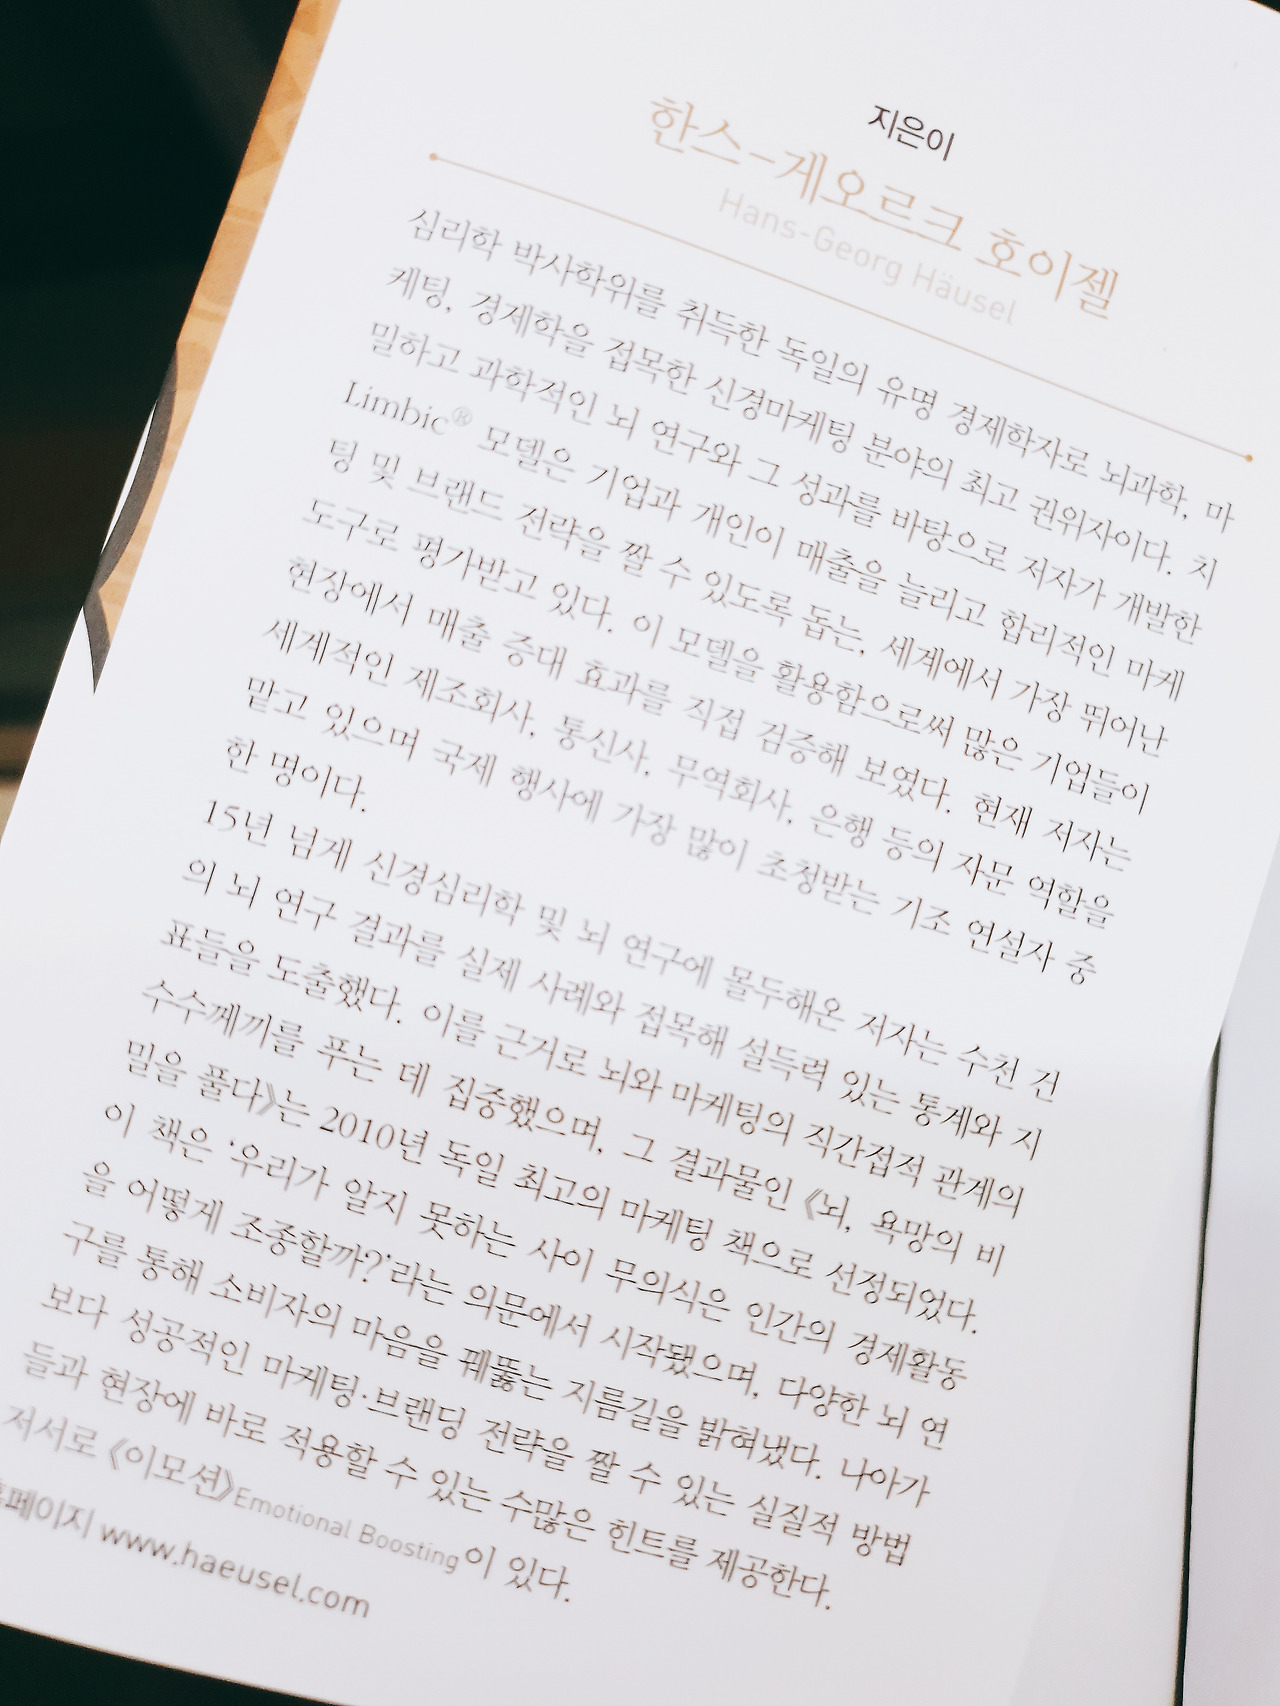 지은이
한스-게오르크 호이젤
Hans-Georg Häusel
심리학 박사학위를 취득한 독일의 유명 경제학자로 뇌과학, 마
케팅, 경제학을 접목한 신경마케팅 분야의 최고 권위자이다. 치
밀하고 과학적인 뇌 연구와 그 성과를 바탕으로 저자가 개발한
Limbic® 모델은 기업과 개인이 매출을 늘리고 합리적인 마케
팅 및 브랜드 전략을 짤 수 있도록 돕는, 세계에서 가장 뛰어난
도구로 평가받고 있다. 이 모델을 활용함으로써 많은 기업들이
현장에서 매출 증대 효과를 직접 검증해 보였다. 현재 저자는
세계적인 제조회사, 통신사, 무역회사, 은행 등의 자문 역할을
맡고 있으며 국제 행사에 가장 많이 초청받는 기조 연설자 중
한 명이다.
15년 넘게 신경심리학 및 뇌 연구에 몰두해온 저자는 수천 건
의 뇌 연구 결과를 실제 사례와 접목해 설득력 있는 통계와 지
표들을 도출했다. 이를 근거로 뇌와 마케팅의 직간접적 관계의
수수께끼를 푸는 데 집중했으며, 그 결과물인 《뇌, 욕망의 비
밀을 풀다》는 2010년 독일 최고의 마케팅 책으로 선정되었다.
이 책은 ‘우리가 알지 못하는 사이 무의식은 인간의 경제활동
을 어떻게 조종할까?’라는 의문에서 시작됐으며, 다양한 뇌 연
구를 통해 소비자의 마음을 꿰뚫는 지름길을 밝혀냈다. 나아가
보다 성공적인 마케팅·브랜딩 전략을 짤 수 있는 실질적 방법
들과 현장에 바로 적용할 수 있는 수많은 힌트를 제공한다.
저서로 《이모션》Emotional Boosting이 있다.
홈페이지 www.haeusel.com